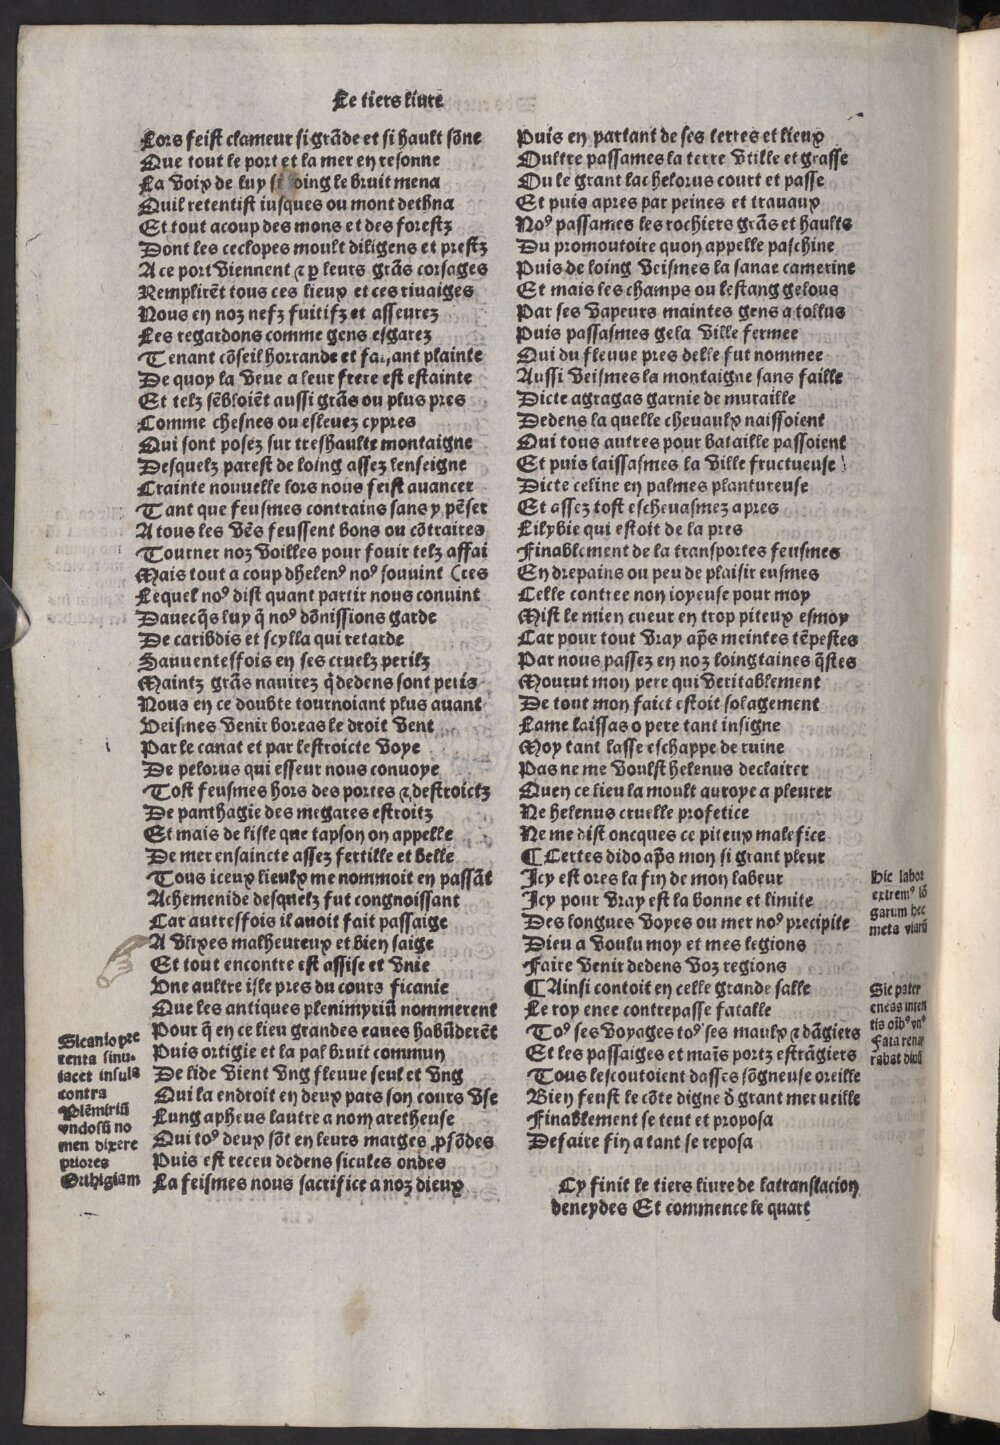 Le tiers liure
Lors feist clameur si grãde et si hault sõne
Que tout le port et la mer en resonne
La voix de luy si loing le bruit mena
Quil retentist iusques ou mont dethna
Et tout acoup des mons et des forestz
Dont les ceclopes moult diligens et prestz
A ce port viennent ⁊ p̱ leurs grãs corsages
Remplirẽt tous ces lieux et ces riuaiges
Nous en noz nefz fuitifz et asseurez
Les regardons comme gens esgarez
Tenant cõseil horrande et faisant plainte
De quoy la veue a leur frere est estainte
Et telz sẽbloiẽt aussi grãs ou plus pres
Comme chesnes ou esleuez cypres
Qui sont posez sur treshaulte montaigne
Desquelz parest de loing assez lenseigne
Crainte nouuelle lors nous feist auancer
Tant que feusmes contrains sans y pẽser
A tous les vẽs feussent bons ou cõtraires
Tourner noz voilles pour fouir telz affai
Mais tout a coup dhelenꝰ noꝰ souuint (res
Lequel noꝰ dist quant partir nous conuint
Dauecq̃s luy q̃ noꝰ dõnissions garde
De caribdis et scylla qui retarde
Sauuenteffois en ses cruelz perilz
Maintz grãs nauirez q̃ dedens sont peris
Nous en ce doubte tournoiant plus auant
Veismes venir boreas le droit vent
Par le canat et par lestroicte voye
De pelorus qui esseur nous conuoye
Tost feusmes hors des portes ⁊ destroictz
De panthagie des megares estroitz
Et mais de lisle que tapson on appelle
De mer ensaincte assez fertille et belle
Tous iceux lieulx me nommoit en passãt
Achemenide desquelz fut congnoissant
Car autresfois il auoit fait passaige
A vlixes malheureux et bien saige
Et tout encontre est assise et vnie
Vne aultre isle pres du cours sicanie
Que les antiques plenimpriũ nommerent
Pour q̃ en ce lieu grandes eaues habũderẽt
Puis ortigie et la pal bruit commun
De lide vient vng fleuue seul et vng
Qui la endroit en deux pars son cours vse
Lung apheus lautre a nom aretheuse
Qui toꝰ deux sõt en leurs marges ꝓfõdes
Puis est receu dedens sicules ondes
La feismes nous sacrifice a noz dieux
Sicanio pre
tenta sinu.
iacet insula
contra
Plẽmiriũ
vndosũ no
men dixere
priores
Orthigiam
Puis en partant de ses terres et lieux
Oultre passames la terre vtille et grasse
Ou le grant lac helorus court et passe
Et puis apres par peines et trauaux
Noꝰ passames les rochiers grãs et haults
Du promoutoire quon appelle paschine
Puis de loing veismes la sanae camerine
Et mais les champs ou lestang gelous
Par ses vapeurs maintes gens a tollus
Puis passasmes gela ville fermee
Qui du fleuue pres delle fut nommee
Aussi veismes la montaigne sans faille
Dicte agragas garnie de muraille
Dedens la quelle cheuaulx naissoient
Qui tous autres pour bataille passoient
Et puis laissasmes la ville fructueuse
Dicte celine en palmes plantureuse
Et assez tost escheuasmez apres
Lilybie qui estoit de la pres
Finablement de la transportes feusmes
En drepains ou peu de plaisir eusmes
Celle contree non ioyeuse pour moy
Mist le mien cueur en trop piteux esmoy
Car pour tout vray ap̃s meintes tẽpestes
Par nous passez en noz loingtaines q̃stes
Mourut mon pere qui veritablement
De tout mon faict estoit solagement
Lame laissas o pere tant insigne
Moy tant lasse eschappe de ruine
Pas ne me voulst helenus declairer
Quen ce lieu la moult auroye a pleurer
Ne helenus cruelle profetice
Ne me dist oncques ce piteux malefice
¶ Certes dido ap̃s mon si grant pleur
Icy est ores la fin de mon labeur
Icy pour vray est la bonne et limite
Des longues voyes ou mer noꝰ precipite
Dieu a voulu moy et mes legions
Faire venir dedens voz regions
¶ Ainsi contoit en celle grande salle
Le roy enee contrepasse fatalle
Toꝰ ses voyages toꝰ ses maulx ⁊ dãgiers
Et les passaiges et maĩs portz estrãgiers
Tous lescoutoient dasses sõgneuse oreille
Bien feust le cõte digne õ grant merueille
Finablement se teut et proposa
De faire fin a tant se reposa
Hic labor
extremꝰ lõ
garum hec
meta viarũ
Sic pater
eneas inten
tis oĩbꝰ vnꝰ
Fata rena
rabat diuũ
Cy finit le tiers liure de la translacion
deneydes Et commence le quart